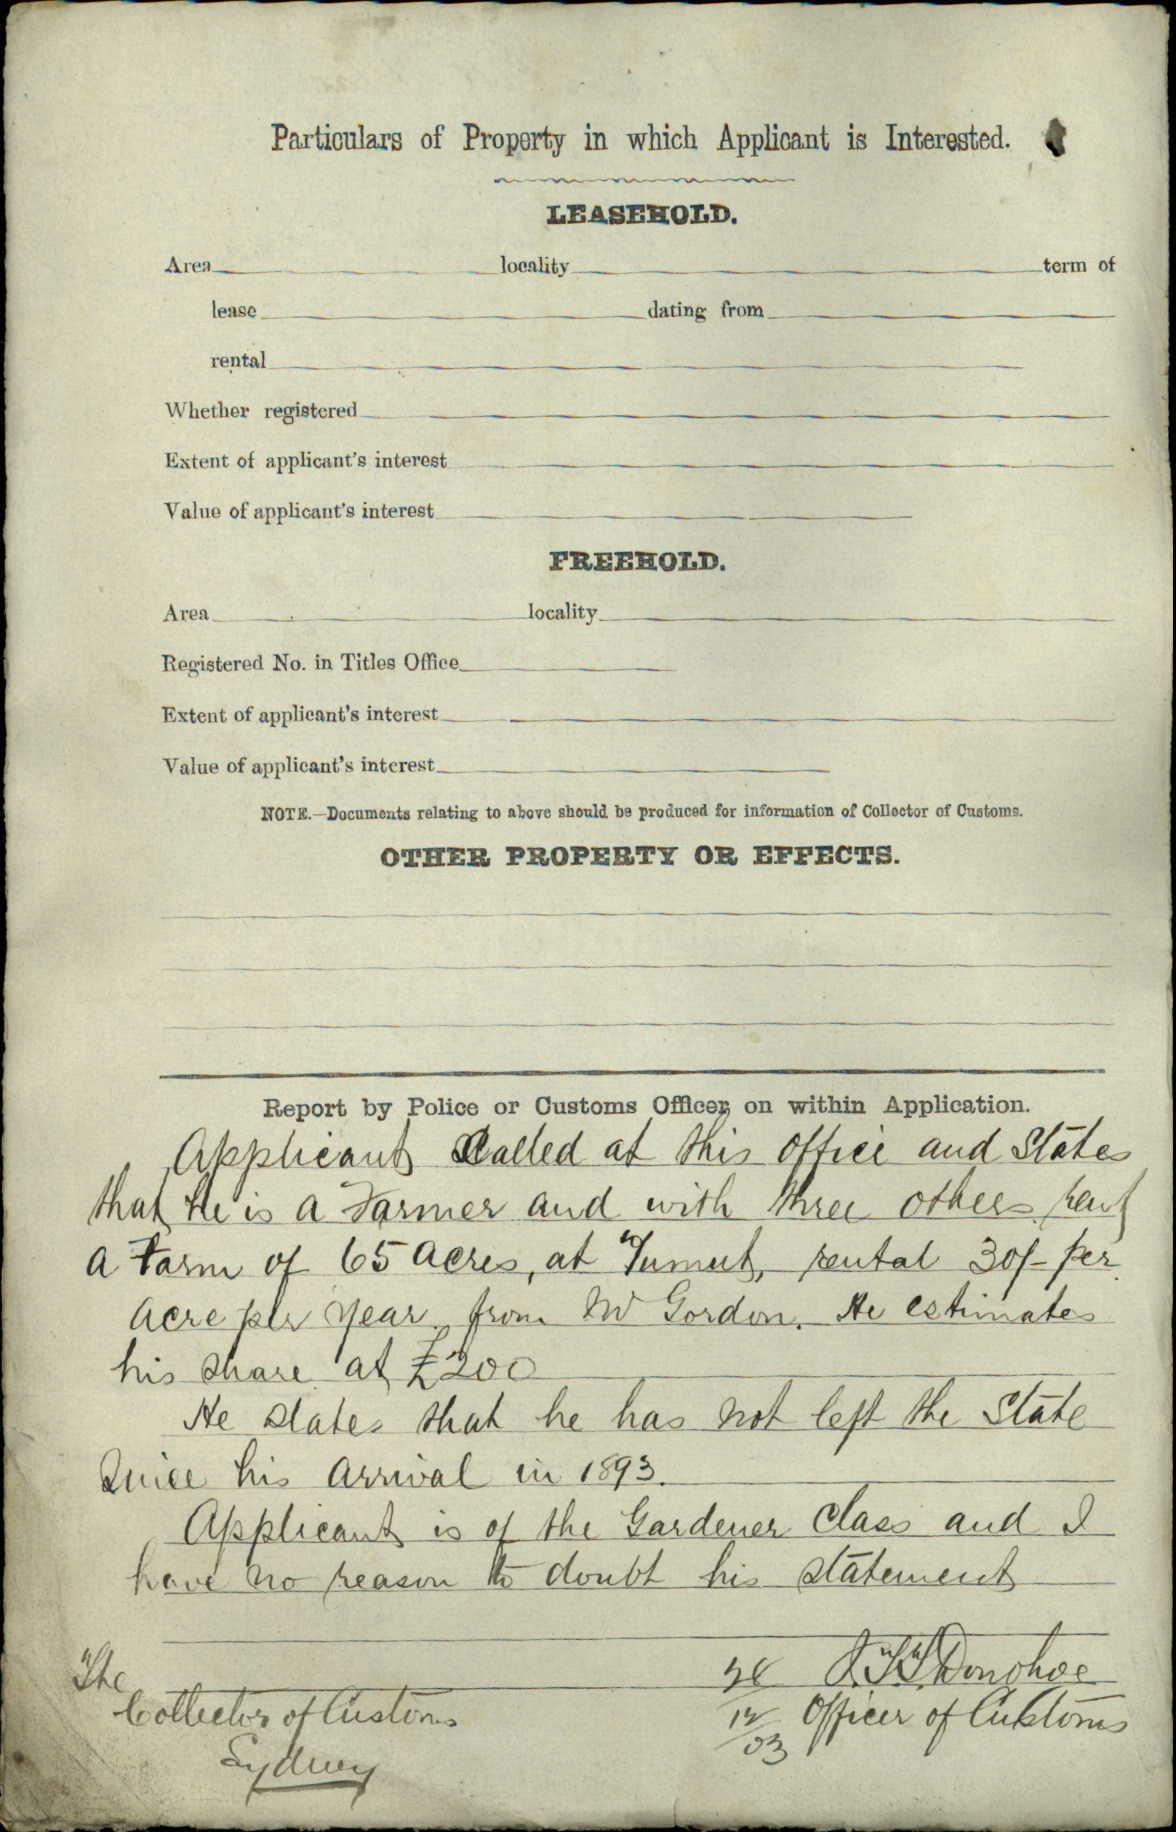 Particulars of Property in which Applicant is Interested.
LEASEHOLD.
Area locality term of
lease dating from
rental
Whether registered
Extent of applicant's interest
Value of applicant's interest
FREEHOLD.
Area locality
Registered No. in Titles Office
Extent of applicant's interest
Value of applicant's interest
NOTE.—Documents relating to above should be produced for information of Collector of Customs.
OTHER PROPERTY OR EFFECTS.
Report by Police or Customs Officer on within Application.
Applicant called at this office and states
that he is a Farmer and with three others rent
a Farm of 65 acres, at Tumut, rental 30/- per
acre per year from W Gordon. He estimates
his share at £200
He states that he has not left the State
since his arrival in 1893.
Applicant is of the Gardener Class and I
have no reason to doubt his statement
The J.T.T. Donohoe
Collector of Customs 12 Officer of Customs
Sydney 03